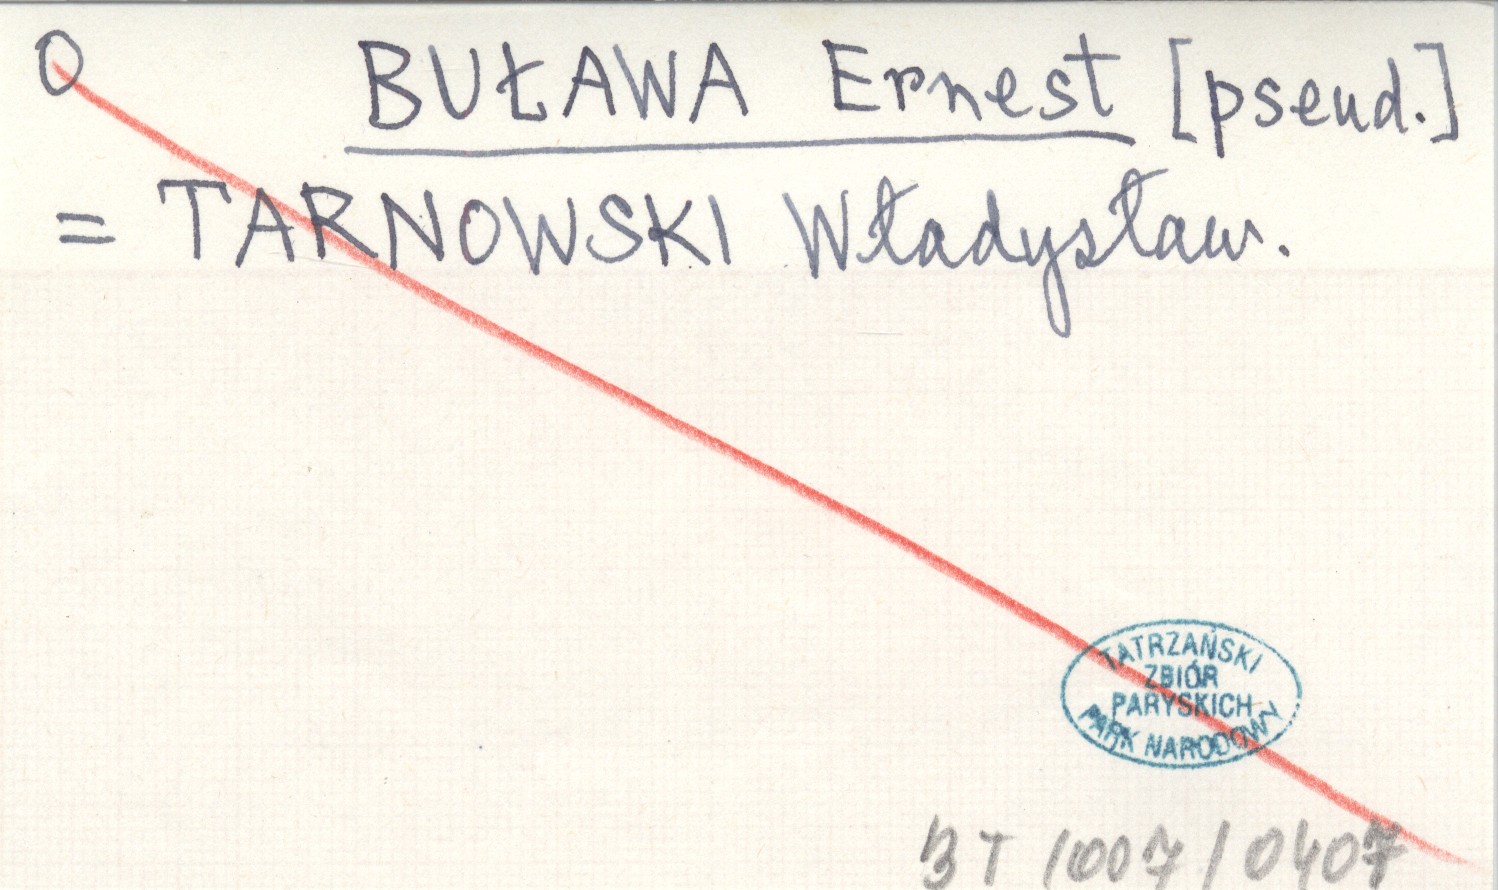 O BUŁAWA Ernest [pseud.]
= TARNOWSKI Władysław.
TATRZAŃSKI
ZBIÓR
PARYSKICH
PARK NARODOWY
BT/007/0407